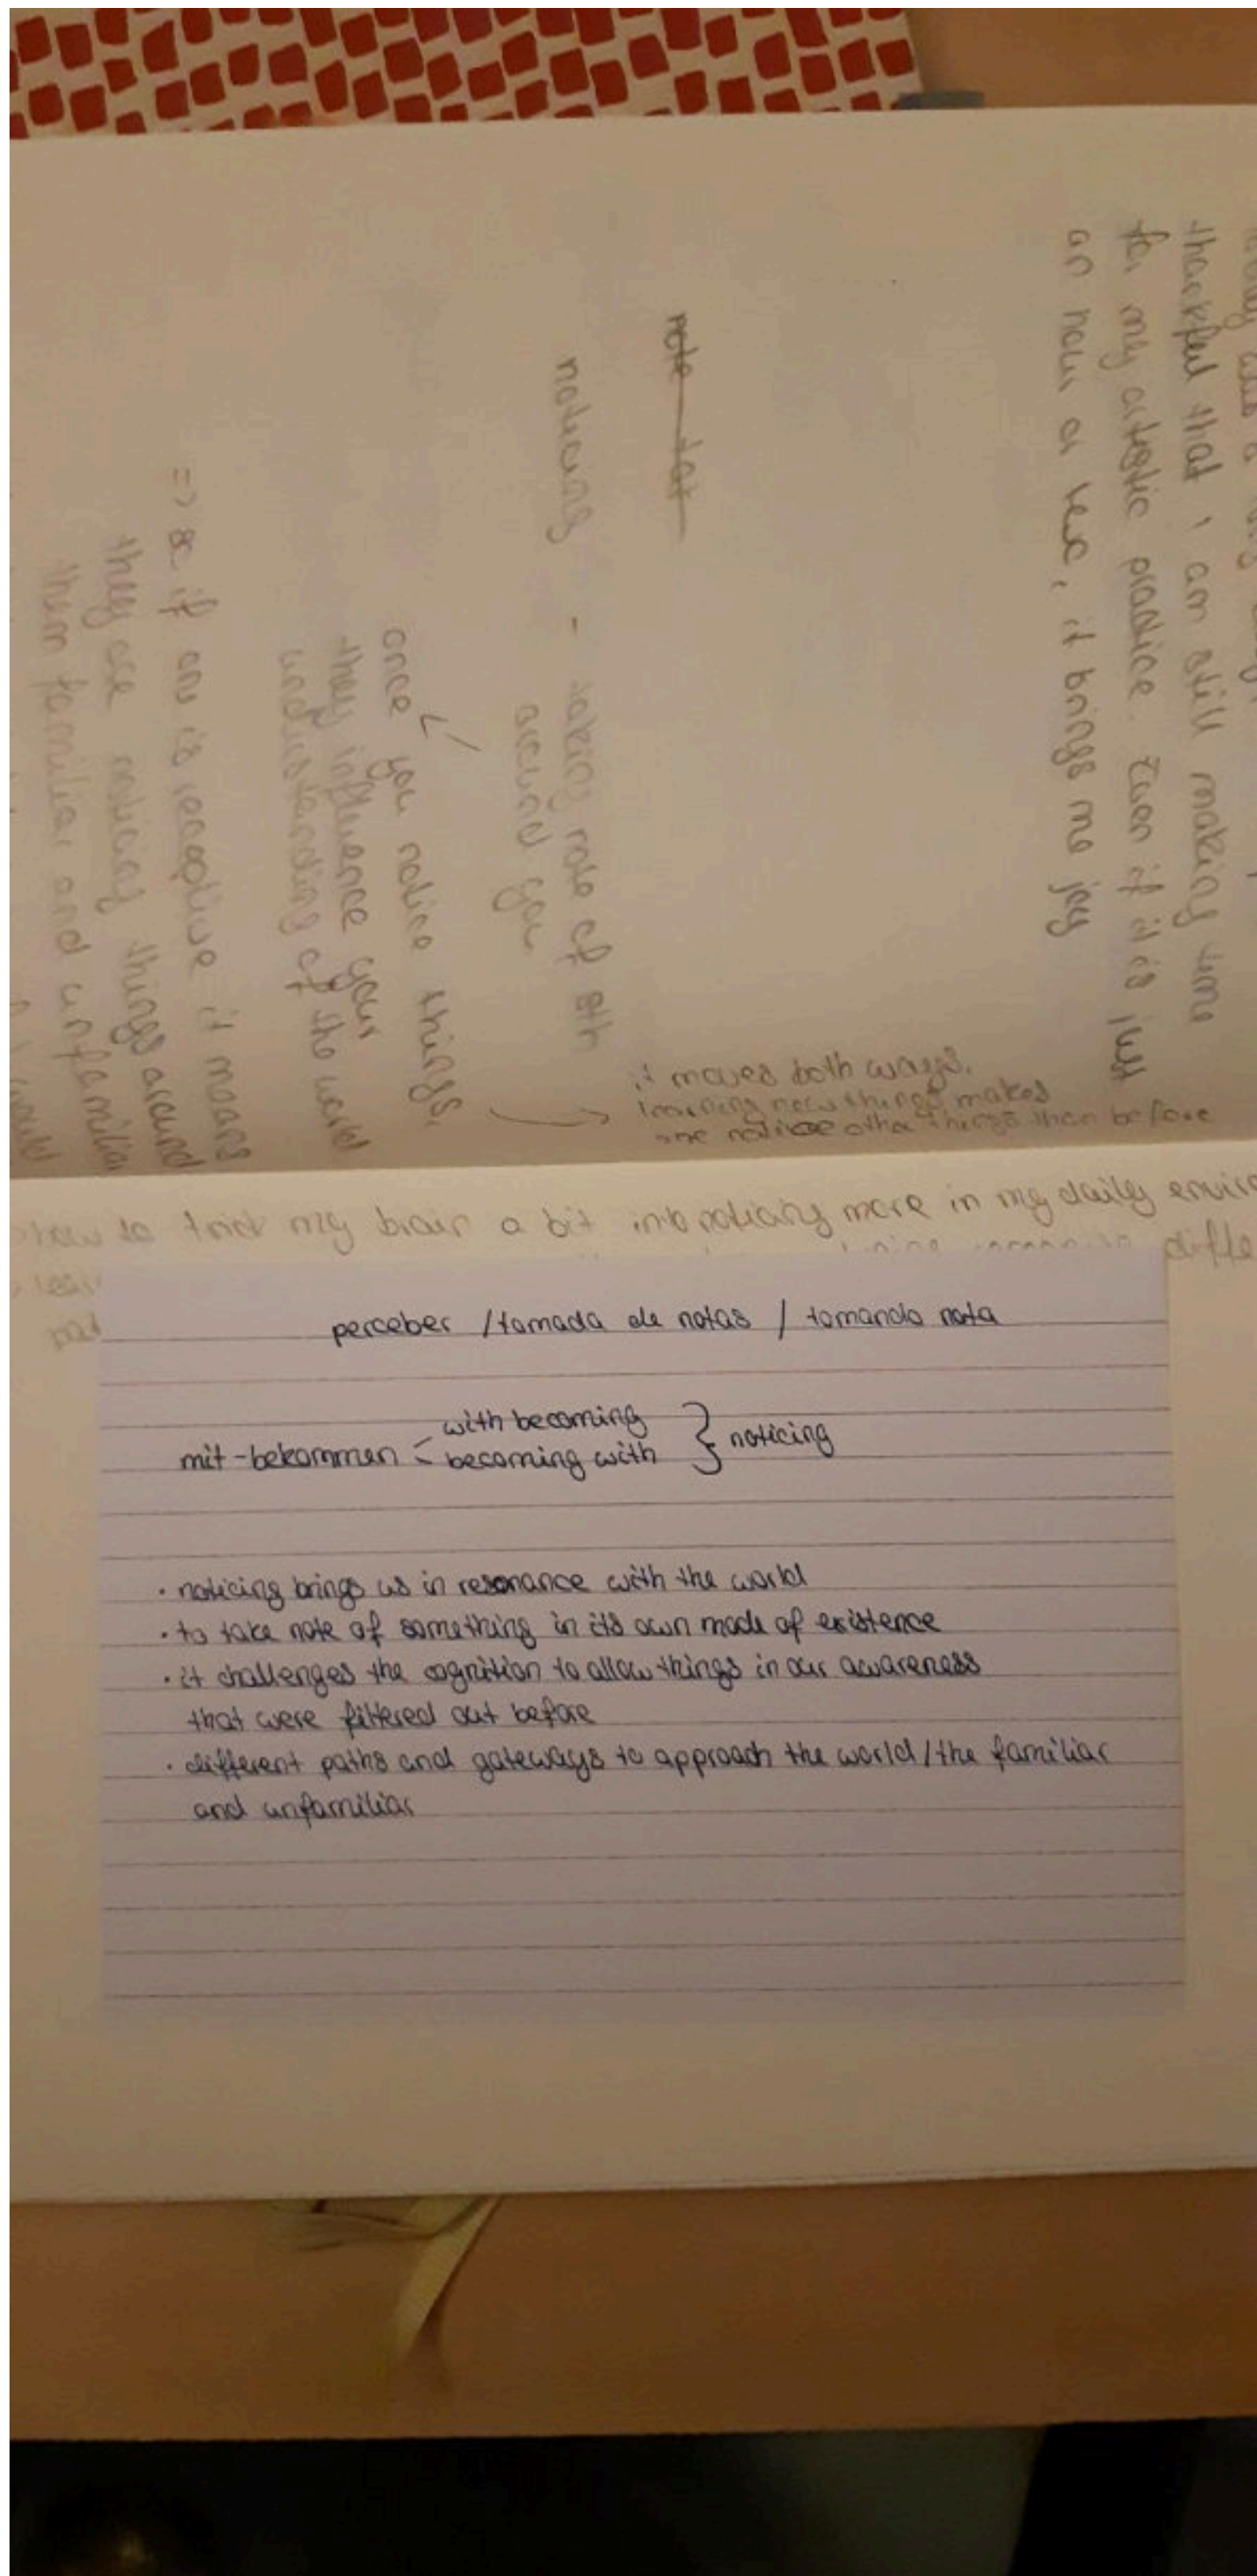 thankful that I am still making time
for my artistic practice. Even if it is just
an hour or two, it brings me joy
note
noticing - taking note of sth
around you
once you notice things,
they influence your
understanding of the world
=> if one is receptive it means
they are noticing things around
them familiar and unfamiliar
it moves both ways.
learning new things makes
one notice other things than before
how to trick my brain a bit into noticing more in my daily
perceber / tomada de notas / tomando nota
with becoming
mit-bekommen < becoming with } noticing
· noticing brings us in resonance with the world
· to take note of something in its own mode of existence
· it challenges the cognition to allow things in our awareness
that were filtered out before
· different paths and gateways to approach the world/the familiar
and unfamiliar